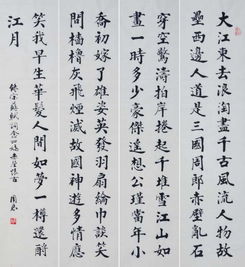 大江東去浪淘盡千古風流人物故
壘西邊人道是三國周郎赤壁亂石
穿空驚濤拍岸捲起千堆雪江山如
畫一時多少豪傑遙想公瑾當年小
喬初嫁了雄姿英發羽扇綸巾談笑
間檣櫓灰飛煙滅故國神遊多情應
笑我早生華髮人間如夢一樽還酹
江月
蘇軾詞念奴嬌赤壁懷古